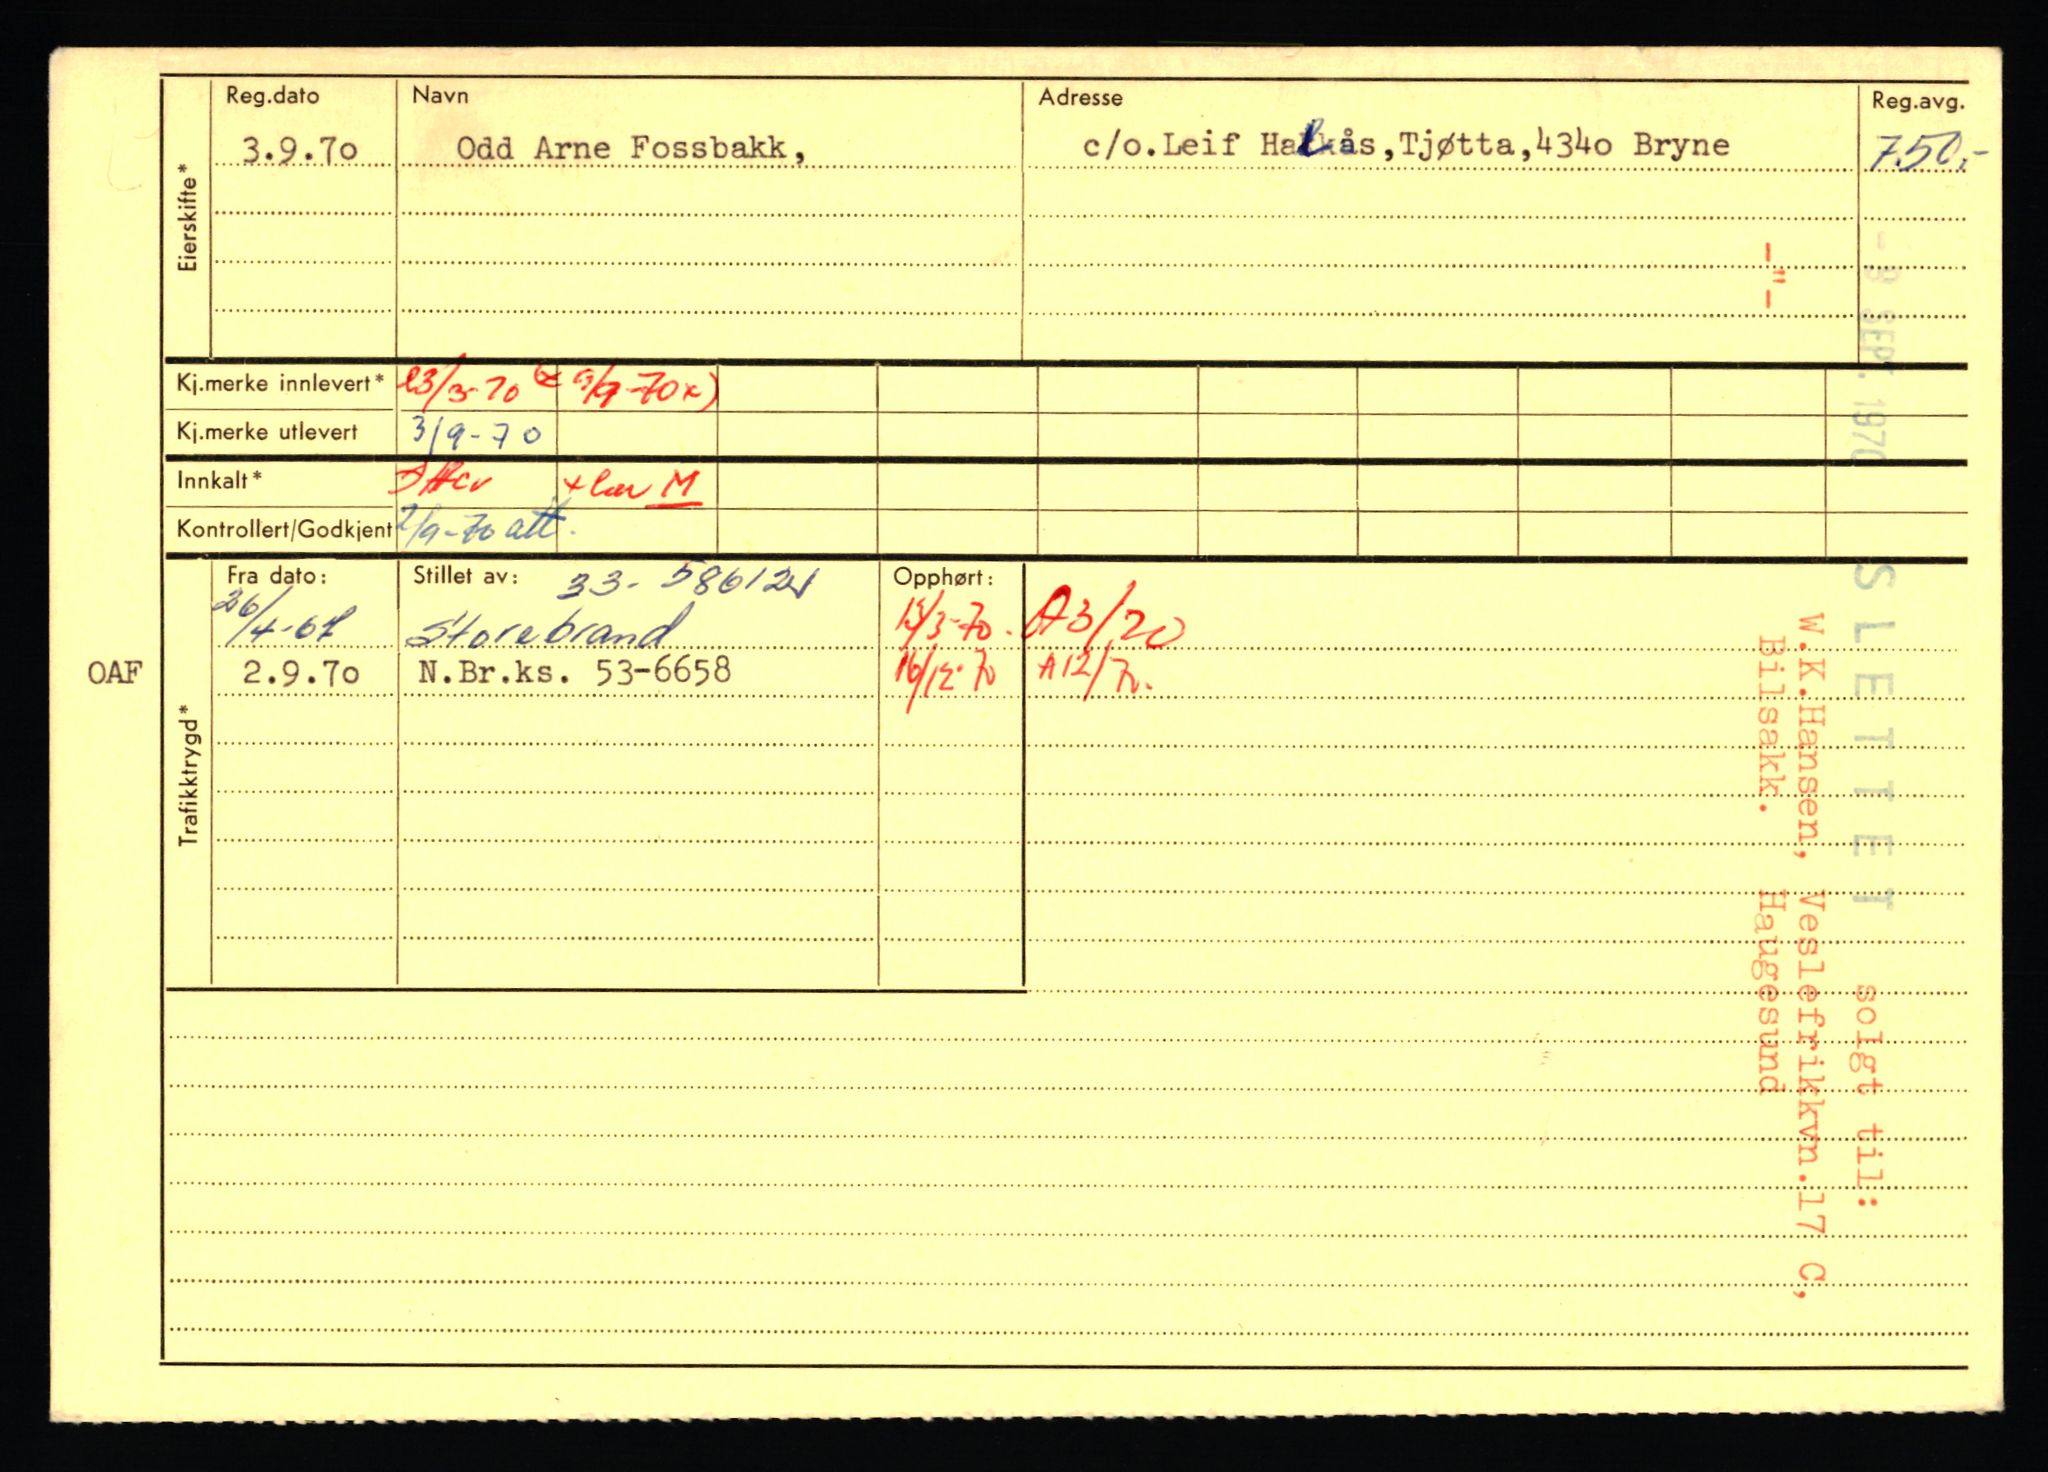 Reg.dato Navn Adresse Reg.avg.
3.9.7o Odd Arne Fossbakk, c/o.Leif Halkås,Tjøtta,434o Bryne 750,-
Eierskifte*
-"-
- 9 SEPT. 1970
Kj.merke innlevert* 23/3-70 9/9-70 x)
Kj.merke utlevert 3/9-70
Innkalt* M
Kontrollert/Godkjent 2/9-70 att.
Fra dato: Stillet av: 33-58612 Opphørt:
26/4-67 Storebrand 15/3-70. A3/70
OAF 2.9.7o N.Br.ks. 53-6658 16/12-70 A12/70.
Trafikktrygd*
SLETTET solgt til:
W.K.Hansen, Veslefrikkvn.17 C,
Bilsakk. Haugesund